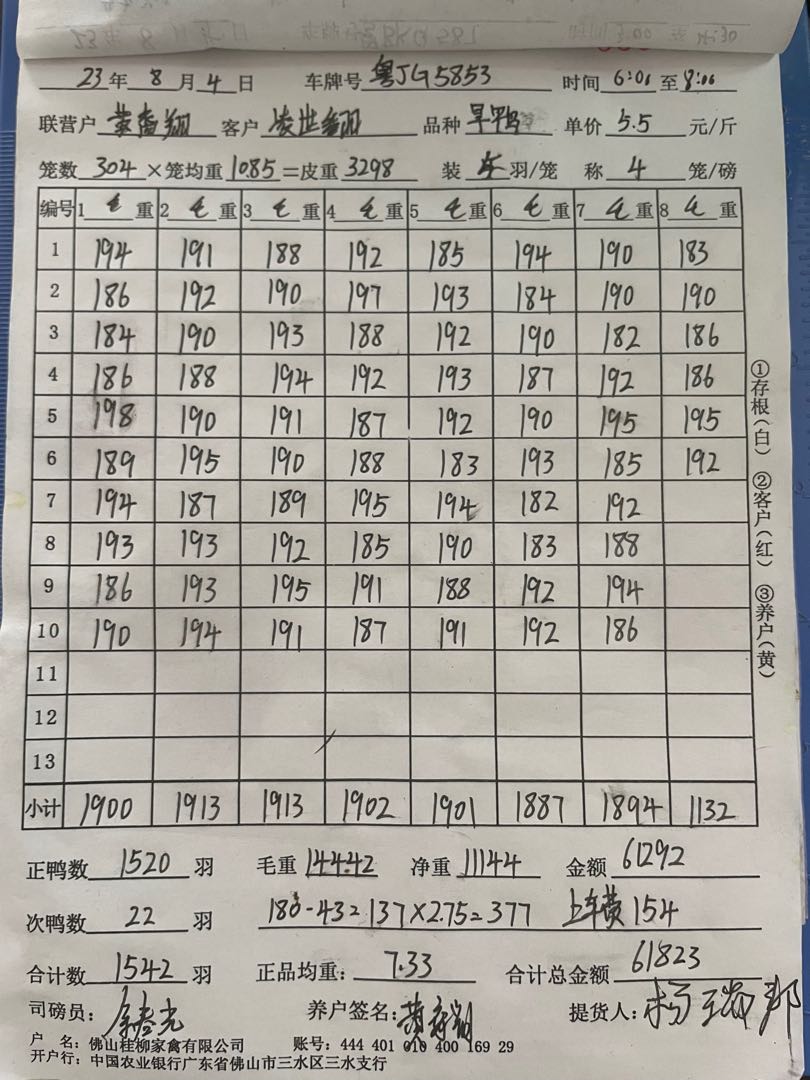 23年 8月4日 车牌号 粤JG5853 时间 6:06 至 8:06
联营户 黄香翔 客户 品种 单价 5.5 元/斤
笼数 304 ×笼均重 1085 =皮重 3298 装 5 羽/笼 称 4 笼/磅
编号 1 毛 重 2 毛 重 3 毛 重 4 毛 重 5 毛 重 6 毛 重 7 毛 重 8 毛 重
1 194 191 188 192 185 194 190 183
2 186 192 190 197 193 184 190 190
3 184 190 193 188 192 190 182 186
4 186 188 194 192 193 187 192 186
5 198 190 191 187 192 190 195 195
6 189 195 190 188 183 193 185 192
7 194 187 189 195 194 182 192
8 193 193 192 185 190 183 188
9 186 193 195 191 188 192 194
10 190 194 191 187 191 192 186
11
12
13
小计 1900 1913 1913 1902 1901 1887 1894 1132
正鸭数 1520 羽 毛重 14442 净重 11144 金额 61292
次鸭数 22 羽 180-43=137×2.75=377 上车费 154
合计数 1542 羽 正品均重: 7.33 合计总金额 61823
司磅员: 养户签名: 提货人:
户 名: 佛山桂柳家禽有限公司 账号: 444 401 010 400 169 29
开户行: 中国农业银行广东省佛山市三水区三水支行
①存根(白) ②客户(红) ③养户(黄)